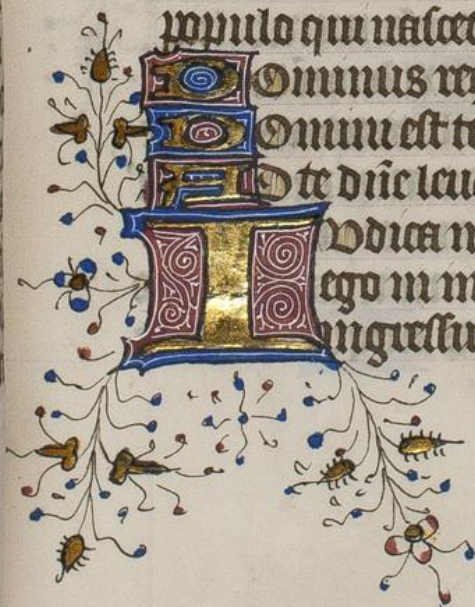 populo qui nasce
DOminus re
DOmini est t
ADte dñe leu
IUdica m
ego in in
ingressu